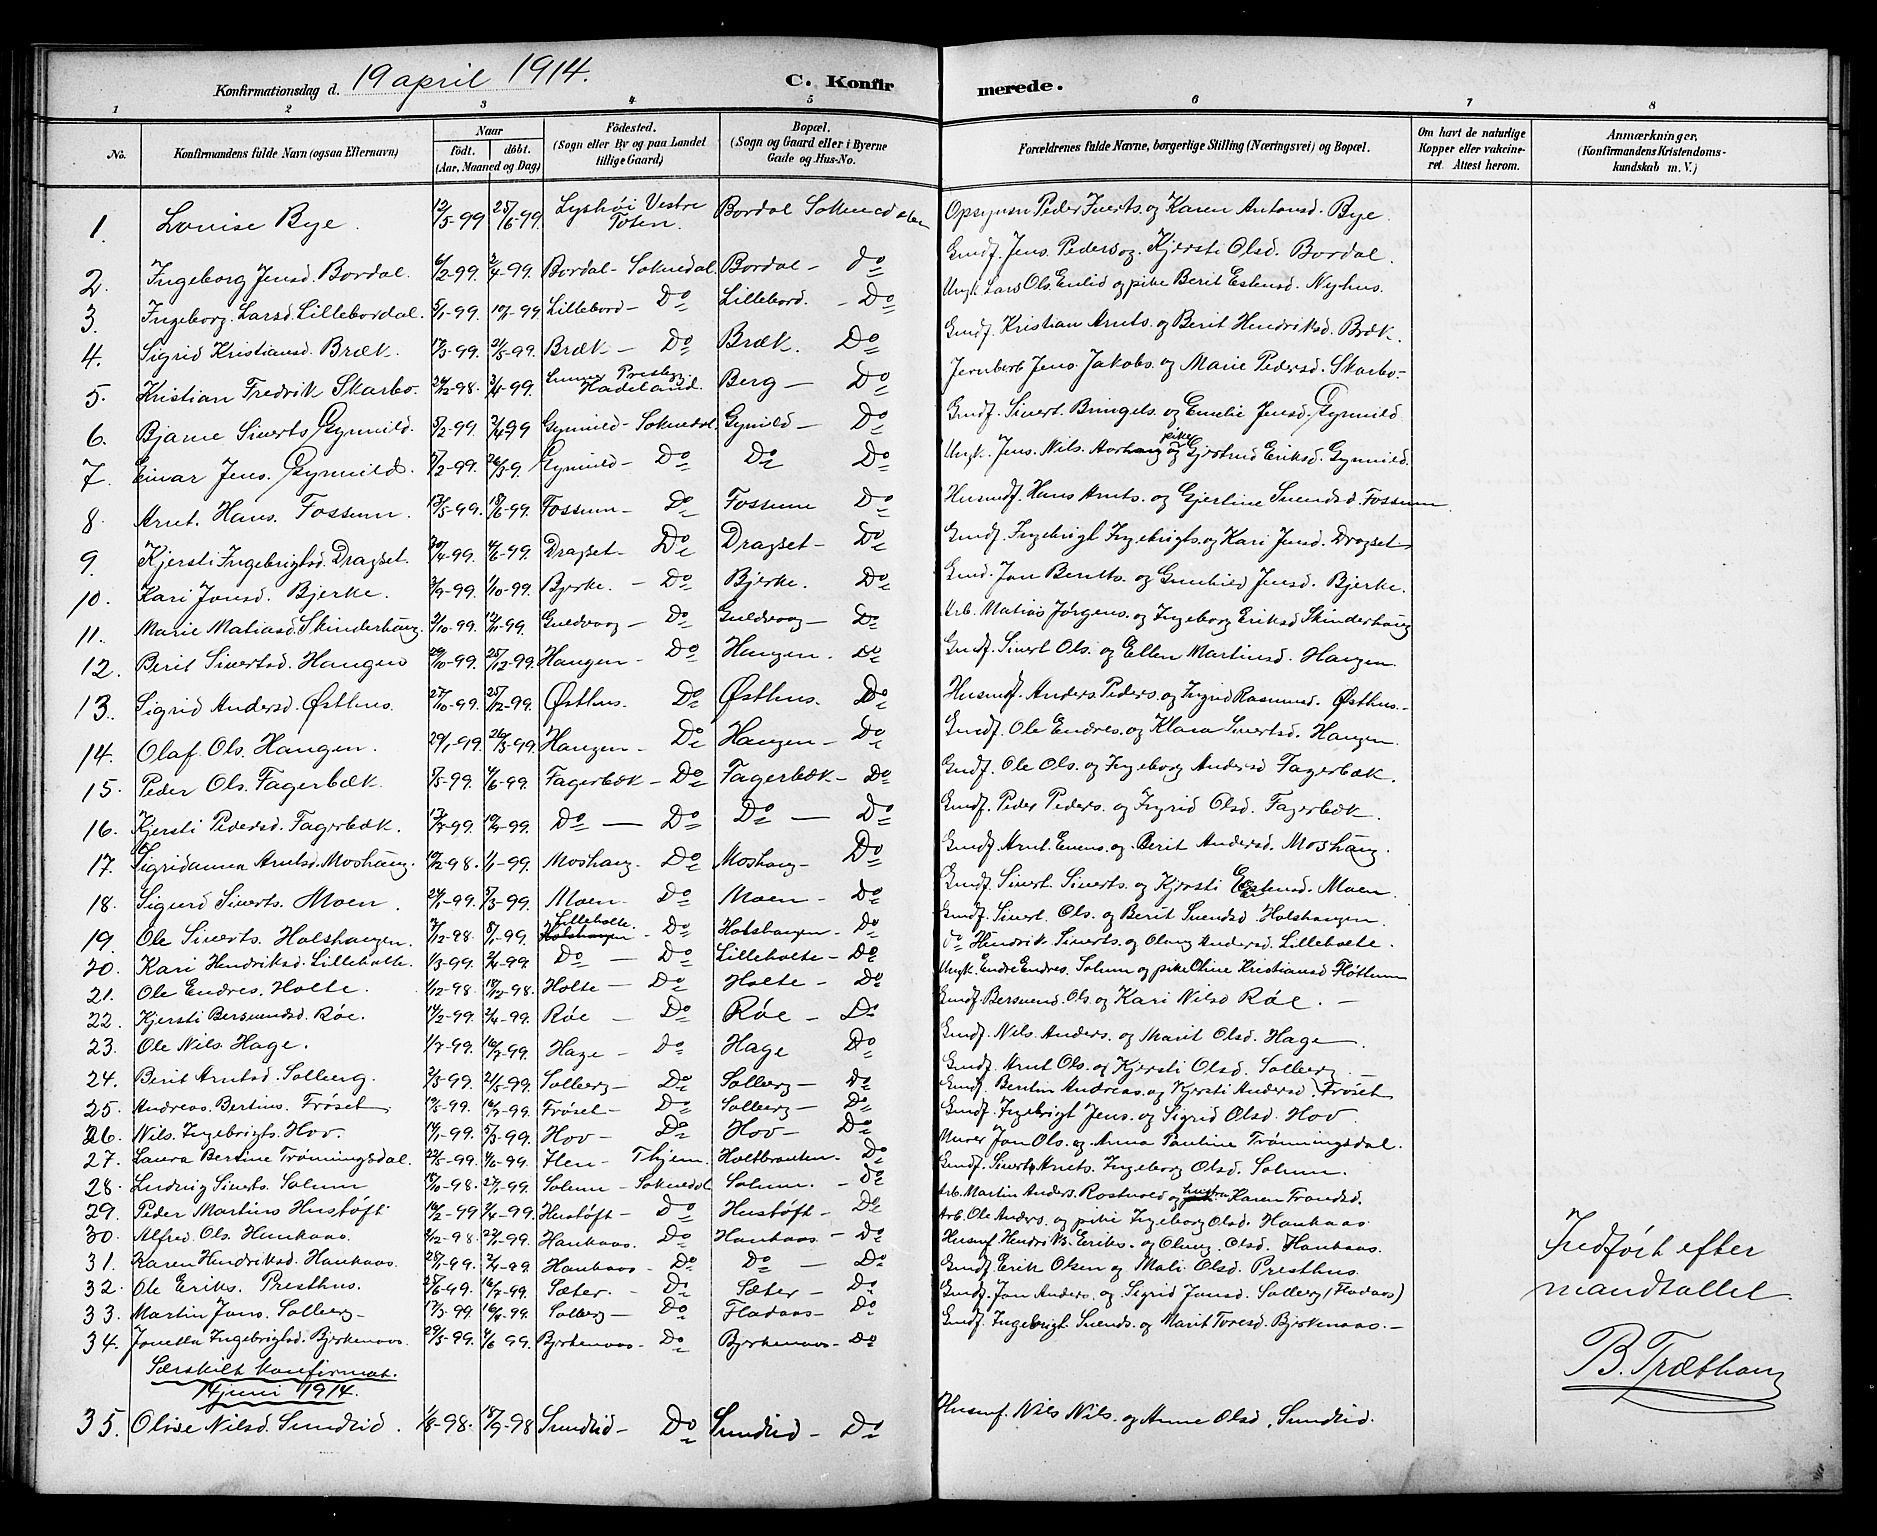 Konfirmationsdag d. 19 april 1914. C. Konfirmerede.
1 2 3 4 5 6 7 8
No. Konfirmandens fulde Navn (ogsaa Efternavn) Naar födt. döbt. (Aar, Maaned og Dag) Födested. (Sogn eller By og paa Landet tillige Gaard) Bopæl. (Sogn og Gaard eller i Byerne Gade og Hus-No. Forældrenes fulde Navne, borgerlige Stilling (Næringsvei) og Bopæl. Om havt de naturlige Kopper eller vakcineret. Attest herom. Anmærkninger. (Konfirmandens Kristendomskundskab m. V.)
1. Louise Bye. 12/5-99 25/6-99. Lyshöi Vestre Toten. Bordal Soknedalen Opsynsm Peder Iverts. og Karen Antonsd. Bye.
2. Ingeborg Jensd. Bordal. 6/2-99. 2/4-99. Bordal- Soknedal. Bordal- Do Gmdf. Jens Peders og Kjersti Olsd. Bordal.
3. Ingeborg Larsd. Lillebordal. 5/1-99. Lillebord- Do Lillebord. - Do Ungk. Lars Ols. Enlid og pike Berit Estensd. Nyhus.
4. Sigrid Kristiansd. Bræk. 17/3-99. 21/5-99. Bræk - Do Bræk. Do Gmdf. Kristian Arnts. og Berit Hendriksd. Bræk.
5. Kristian Fredrik Skarbo. 26/12-98. Lunner Prestegj. Hadeland. Berg - Do Jernbarb Jens Jakobs. og Marie Pedersd. Skarbo-
6. Bjarne Siverts Gynnild. 5/2-99. 2/4-99 Gynnild- Soknedal. Gynild- Do Gmdf. Sivert Bringels. og Emelie Jensd. Gynnild
7. Einar Jens. Gynnild. 7/2-99. 26/3-9. Gynnild- Do Do Do Ungk. Jens. Nils. Aarhaug og pike Gjertrud Eriksd. Gynnild.
8. Arnt. Hans. Fossum. 13/5-99. 18/6-99. Fossum- Do Fossum Do Husmdf. Hans Arnts. og Gjertine Svendsd Fossum
9. Kjersti Ingebrigtsd. Dragset. 30/4-99. 4/6-99. Dragset- Do Dragset- Do Gmdf. Ingebrigt Ingebrigts. og Kari Jensd. Dragset
10. Kari Jonsd. Bjerke. 3/9-99. 1/10-99. Bjerke. - Do Bjerke. Do Gmd. Jon Berntts. og Gunhild Jensd. Bjerke.
11. Marie Matiasd. Skinderhaug. 3/10-99. 12/11-99. Guldvaag- Do Guldvaag- Do Arb. Matias Jørgens. og Ingeborg Eriksd Skinderhaug
12. Berit Sivertsd. Haugen 29/10-99. 25/12-99. Haugen- Do Haugen. Do Gmdf. Sivert Ols. og Ellen Martinsd. Haugen
13. Sigrid Andersd. Østhus. 27/10-99. 25/12-99. Østhus. Do Østhus. Do Husmdf. Anders Peders. og Ingrid Rasmusd. Østhus.-
14. Olaf Ols. Haugen. 29/1-99. 26/3-99. Haugen- Do Haugen- Do Gmdf. Ole Endres. og Klara Sivertsd. Haugen
15. Peder Ols. Fagerbæk 7/5-99. 4/6-99. Fagerbæk- Do Fagerbæk- Do Gmdf. Ole Ols. og Ingeborg Andersd Fagerbæk.
16. Kjersti Pedersd. Fagerbæk. Do - Do Do - Do Gmdf. Peder Peders. og Ingrid Olsd. Fagerbæk.
17. Sigridanna Arntsd. Moshaug. 10/12-98. 1/1-99. Moshaug- Do Moshaug- Do Gmdf. Arnt Evens. og Berit Andersd. Moshaug.
18. Sigurd Siverts. Moen. 24/1-99. 5/3-99. Moen- Do Moen- Do Gmdf. Sivert Siverts. og Kjersti Estensd. Moen
19. Ole Siverts. Holshaugen. 8/1-99. Lilleholte. Holshaugen - Do Holshaugen- Do Gmdf. Sivert. Ols. og Berit Svendsd Holshaugen
20. Kari Hendriksd. Lilleholte. 1/3-99. 2/4-99. Do - Do Lilleholte- Do do Hendrik Siverts. og Oluug Andersd. Lilleholte.
21. Ole Endres. Holte. 1/12-98. 18/12-98. Holte- Do Holte- Do Ungk. Endre Endres. Solum og pike Oline Kristiansd Fløttum
22. Kjersti Bersvendsd. Røe. 14/2-99. 2/4-99. Røe - Do Røe - Do Gmdf. Bersvend. Ols. og Kari Nilsd Røe. -
23. Ole Nils. Hage. 1/7-99. 16/7-99. Hage- Do Hage Do Gmdf. Nils. Anders. og Marit Olsd. Hage
24. Berit Arntsd. Solberg. 3/3-99. 21/5-99. Solberg- Do Solberg- Do Gmdf. Arnt Ols. og Kjersti Olsd. Solberg
25. Andreas. Bertins. Frøset 16/7-99. Frøset- Do Solberg- Do Gmdf. Bertin Andreas. og Kjersti Andersd. Frøset
26. Nils. Ingebrigts. Hov. 14/1-99. 5/3-99. Hov- Do Hov- Do Gmdf. Ingebrigt Jens. og Sigrid Olsd. Hov.
27. Laura Bertine Trønningsdal. 22/5-99. 4/6-99. Hen- Thjem. Holtbrauten- Do Murer Jon Ols. og Anna Pauline Trønningsdal.
28. Ludvig Siverts. Solum 18/10-98. 27/1-99. Solum - Soknedal Solum. - Do Gmdf. Sivert Arnts. Ingeborg Olsd. Solum.
29. Peder Martins Hustøft 16/2-99 2/4-99. Hustøft- Do Hustøft- Do Arb. Martin Anders. Rostvold og hustru Karen Frandsd.
30. Alfred Ols. Haukaas. Haukaas. Do Haukaas- Do Arb. Ole Anders. og pike Ingeborg Olsd. Haukaas
31. Karen Hendriksd. Haukaas. 25/1-99. 2/4-99. Haukaas- Do Do - Do Husmf. Hendrik Eriks. og Oluug. Olsd. Haukaas.
32. Ole Eriks. Presthus. 16/7-99. Sæter. - Do Sæter- Do Gmdf. Erik Olsen og Mali Olsd. Presthus
33. Martin Jons. Solberg- 17/3-99 Solberg- Do Fladaas- Do Gmdf. Jon Anders. og Sigrid Jonsd. Solberg (Fladaas)
34. Jonetta Ingebrigtsd. Bjerkenaas. 29/5-99. 4/6 99. Bjerkenaas- Do Bjerkenaas- Do Gmdf. Ingebrigt Svends. og Marit Toresd. Bjerkenaas.-
Særskilt konfirmat.
14 juni 1914.
35. Olise Nilsd Sundlid. 1/8-98. 18/9-98 Sundlid- Do Sundlid - Do Husmf. Nils Nils. og Anne Olsd. Sundlid.
Indført efter
mandtallet.
B. Træthaug